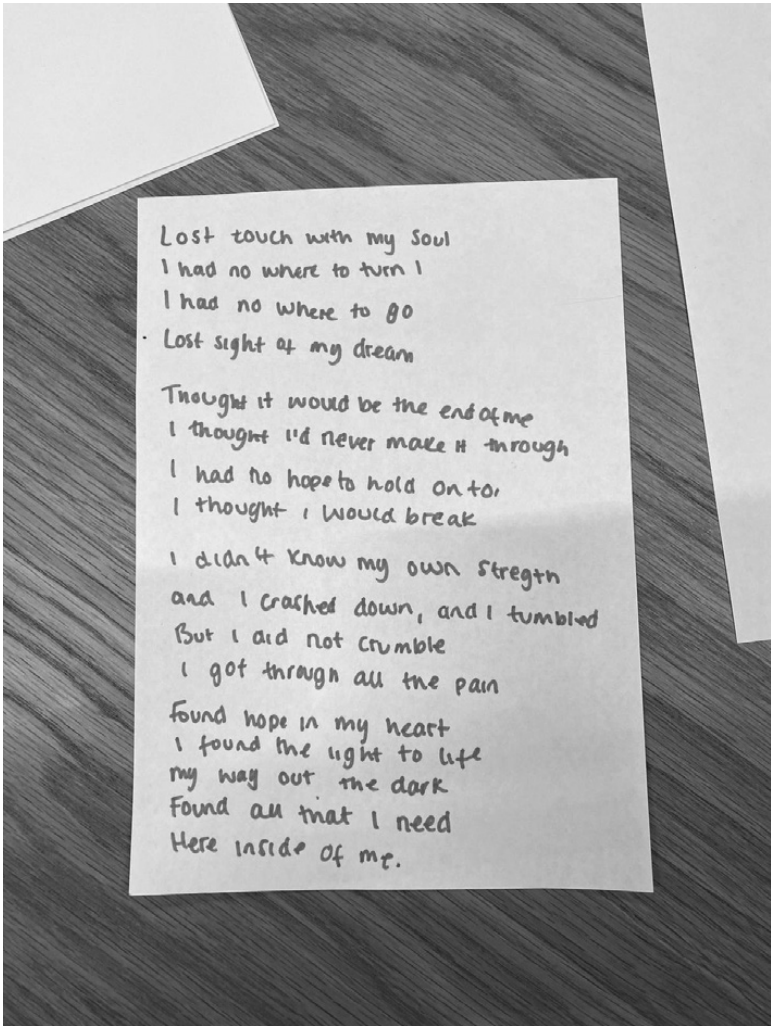 Lost touch with my soul
I had no where to turn I
I had no where to go
Lost sight of my dream
Thought it would be the end of me
I thought I'd never make it through
I had no hope to hold on to,
I thought I would break
I didn't know my own stregth
and I crashed down, and I tumbled
But I did not crumble
I got through all the pain
Found hope in my heart
I found the light to life
my way out the dark
Found all that I need
Here inside of me.